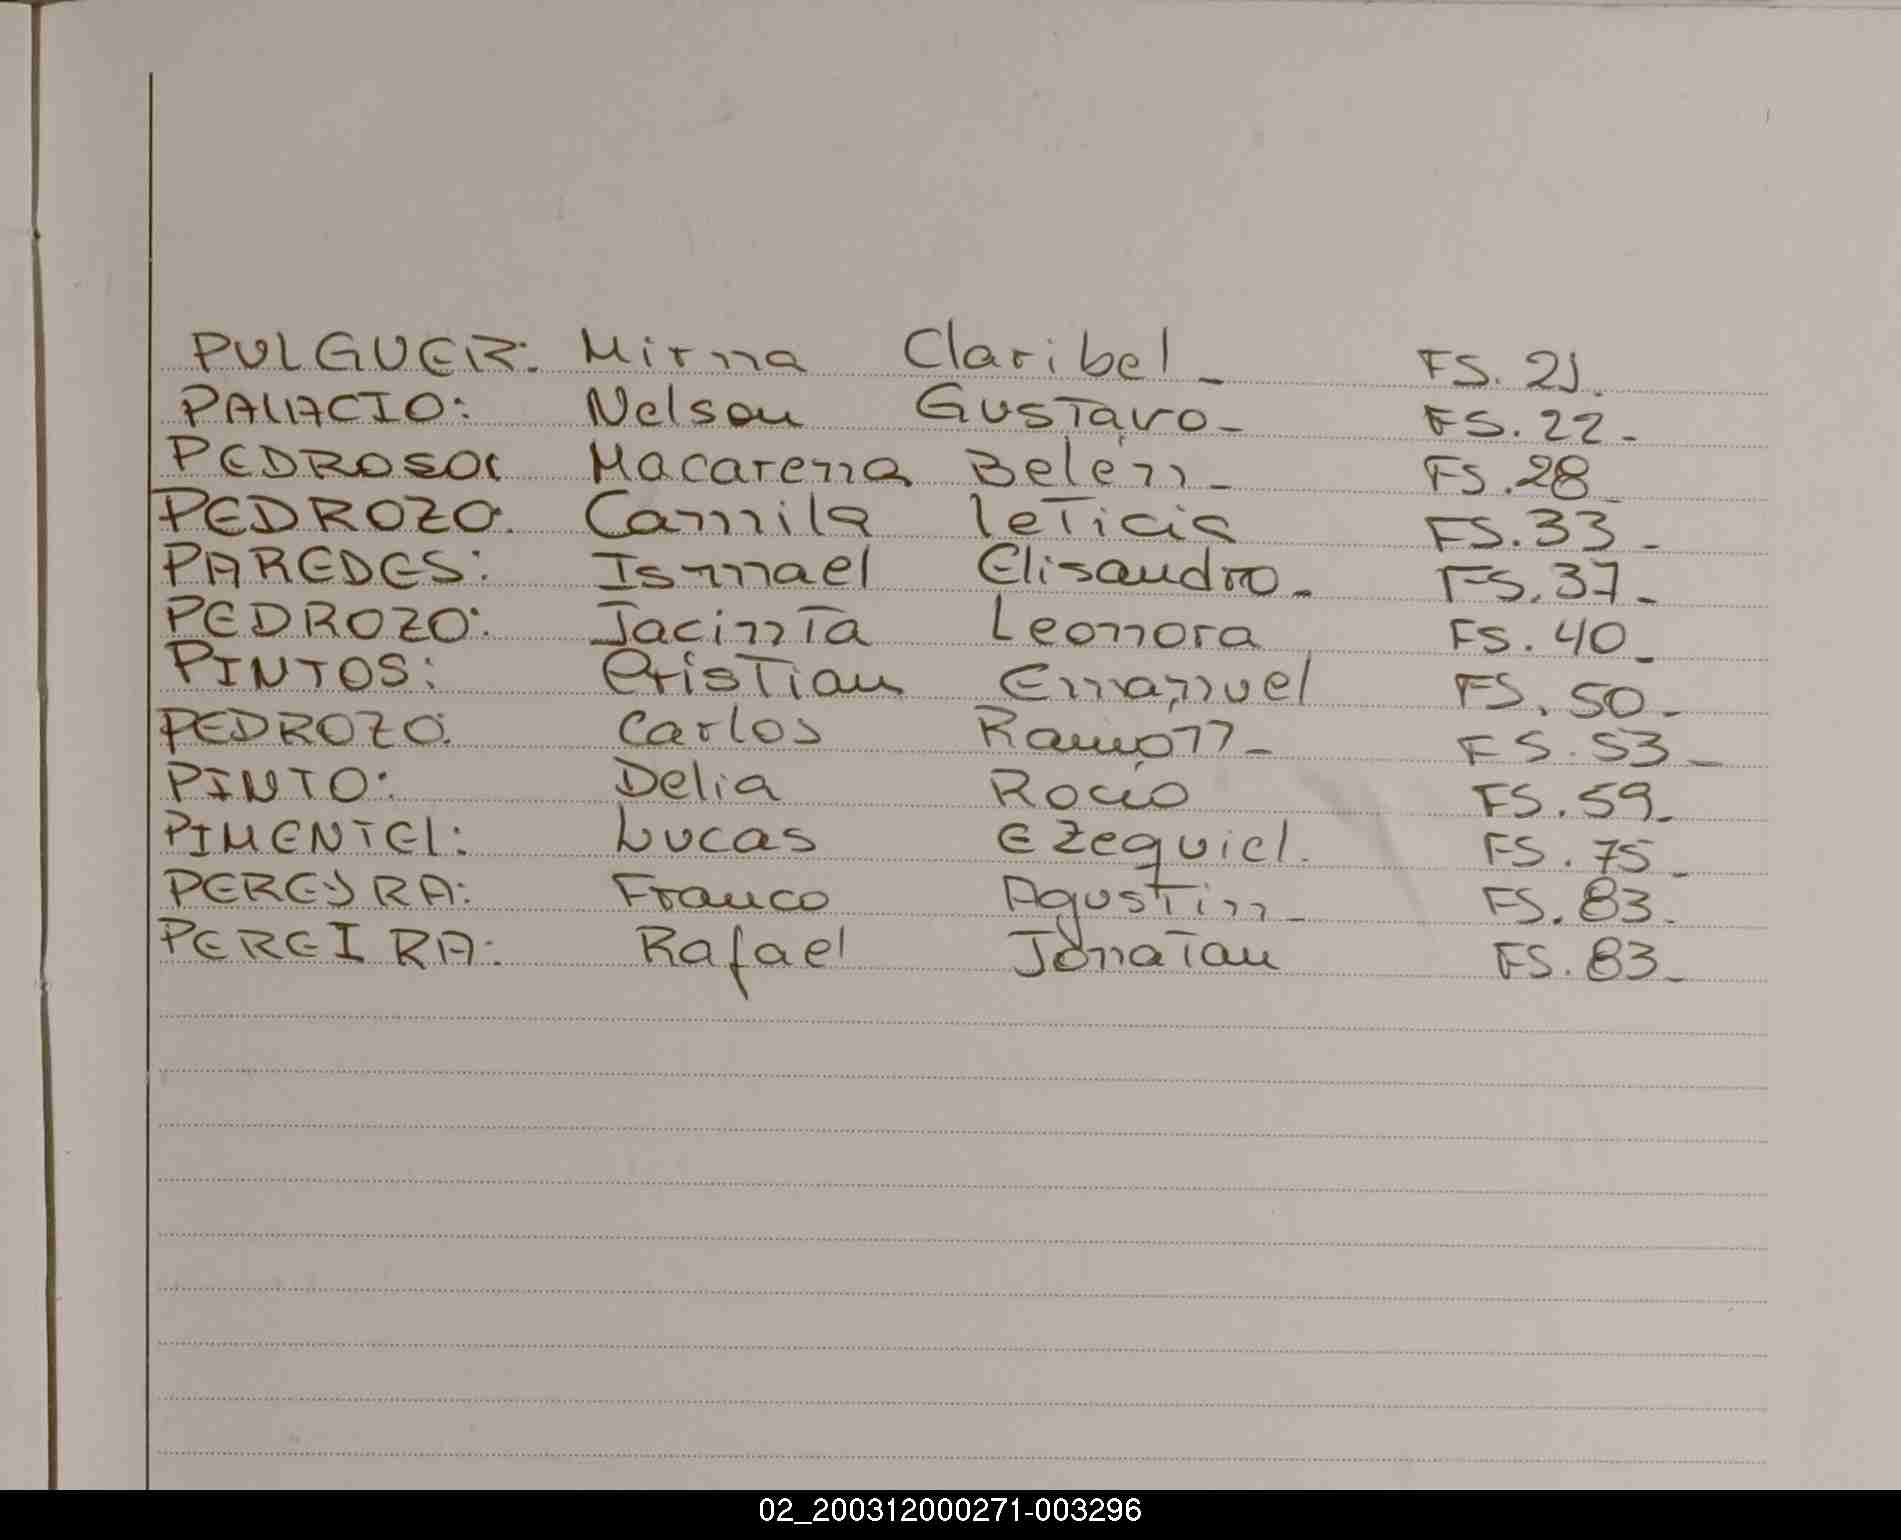 PULGUER: Mirna Claribel_ FS. 21.
PALACIO: Nelson Gustavo_ FS. 22_
PEDROSO: Macarena Belén_ FS. 28_
PEDROZO. Camila Leticia FS. 33_
PAREDES: Ismael Elisandro_ FS. 37_
PEDROZO: Jacinta Leonora FS. 40_
PINTOS: Cristian Emanuel FS. 50_
PEDROZO. Carlos Ramón_ FS. 53_
PINTO: Delia Rocío FS. 59_
PIMENTEL: Lucas Ezequiel. FS. 75_
PEREYRA: Franco Agustin_ FS. 83_
PEREIRA: Rafael Jonatan FS. 83_
02_200312000271-003296